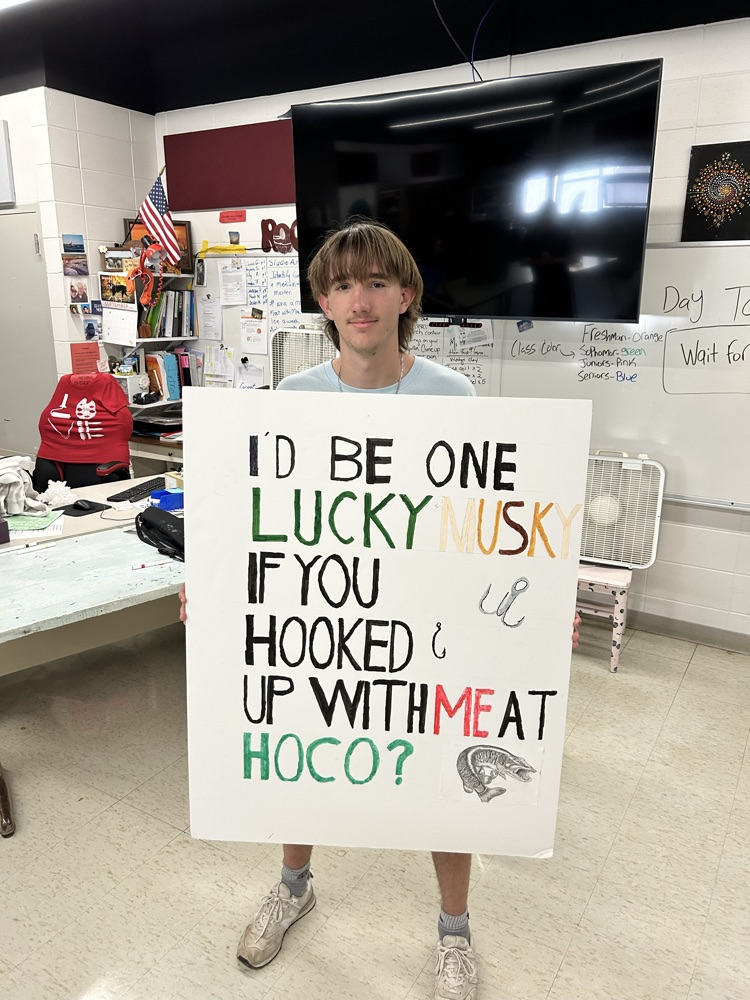 I'D BE ONE
LUCKY MUSKY
IF YOU
HOOKED
UP WITH ME AT
HOCO?
Class Color
Freshman-Orange
Sothomor-green
Juniors-Pink
Seniors-Blue
Day To
Wait for